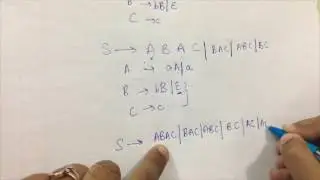 B → bB|ε
C → c
S → ABAC | BAC | ABC | BC
A → aA|a
B → bB|ε
C → c
S → ABAC | BAC | ABC | BC | AC | A